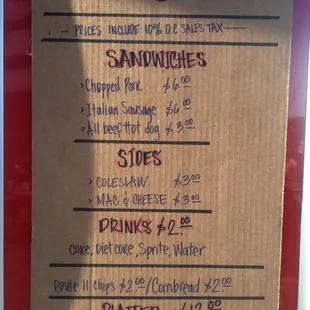 PRICES INCLUDE 10% D.C SALES TAX
SANDWICHES
> Chopped Pork $6.00
> Italian Sausage $6.00
> All beef Hot dog $3.00
SIDES
> COLESLAW $3.00
> MAC & CHEESE $3.00
DRINKS $2.00
Coke, Diet coke, Sprite, Water
Route 11 Chips $2.00/Cornbread $2.00
PLATTER $12.00